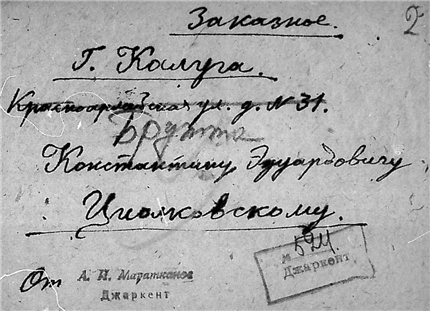 Заказное.
2
Г. Калуга.
Красноармейская ул. д. № 31.
Брутта
Константину Эдуардовичу
Циолковскому.
№ 524.
Джаркент
От А. И. Мираткансв
Джаркент